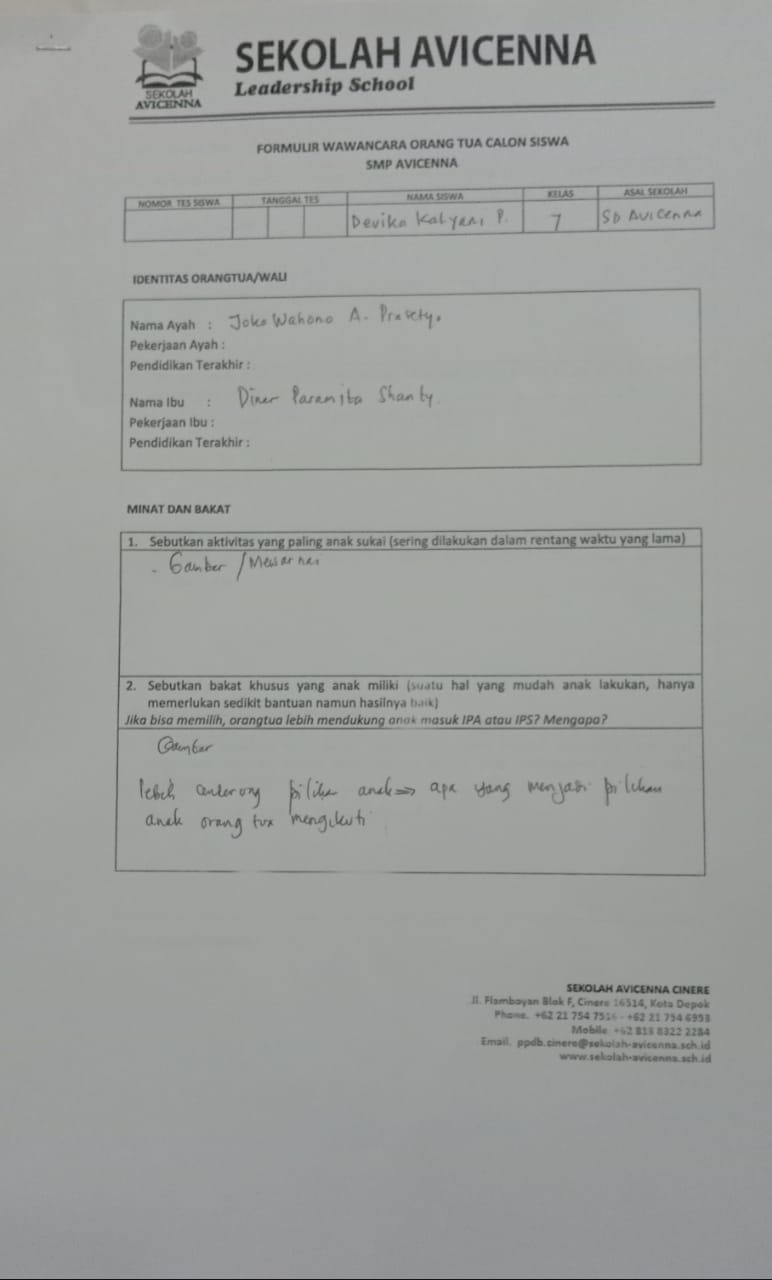 SEKOLAH AVICENNA
Leadership School
SEKOLAH
AVICENNA
FORMULIR WAWANCARA ORANG TUA CALON SISWA
SMP AVICENNA
NOMOR TES SISWA TANGGAL TES NAMA SISWA KELAS ASAL SEKOLAH
Devika Kalyani P. 7 SD Avicenna
IDENTITAS ORANGTUA/WALI
Nama Ayah : Joko Wahono A. Prasetyo
Pekerjaan Ayah :
Pendidikan Terakhir :
Nama Ibu : Paramita Shanty
Pekerjaan Ibu :
Pendidikan Terakhir :
MINAT DAN BAKAT
1. Sebutkan aktivitas yang paling anak sukai (sering dilakukan dalam rentang waktu yang lama)
- Gambar / Mewarnai
2. Sebutkan bakat khusus yang anak miliki (suatu hal yang mudah anak lakukan, hanya
memerlukan sedikit bantuan namun hasilnya baik)
Jika bisa memilih, orangtua lebih mendukung anak masuk IPA atau IPS? Mengapa?
Gambar
lebih cenderung pilihan anak => apa yang menjadi pilihan
anak orang tua mengikuti
SEKOLAH AVICENNA CINERE
Jl. Flamboyan Blok F, Cinere 16514, Kota Depok
Phone. +62 21 754 7516 - +62 21 754 6953
Mobile. +62 818 8322 2284
Email. ppdb.cinere@sekolah-avicenna.sch.id
www.sekolah-avicenna.sch.id